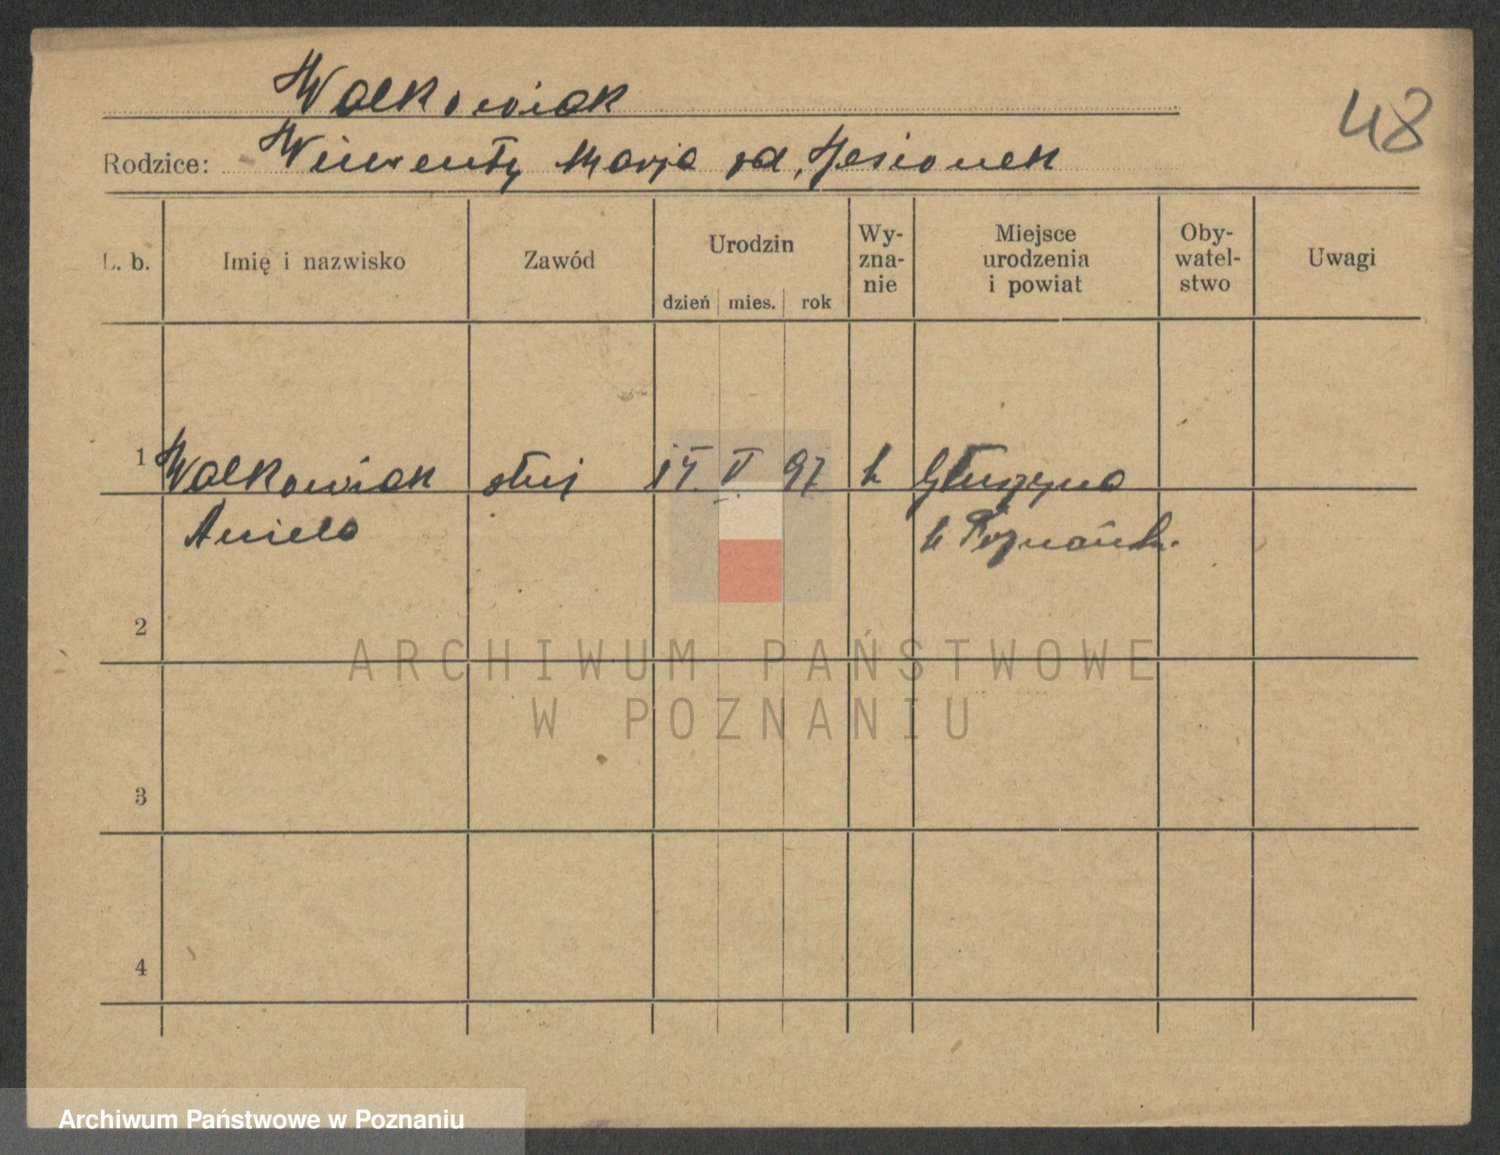 Walkowiak
48
Rodzice: Wincenty Marja zd. Jesionek
L. b.
Imię i nazwisko
Zawód
Urodzin
dzień mies. rok
Wy-
zna-
nie
Miejsce
urodzenia
i powiat
Oby-
watel-
stwo
Uwagi
1 Walkowiak służ 14. V. 97 k Głuszyna
Aniela k Poznańsk.
2
3
4
ARCHIWUM PAŃSTWOWE
W POZNANIU
Archiwum Państwowe w Poznaniu